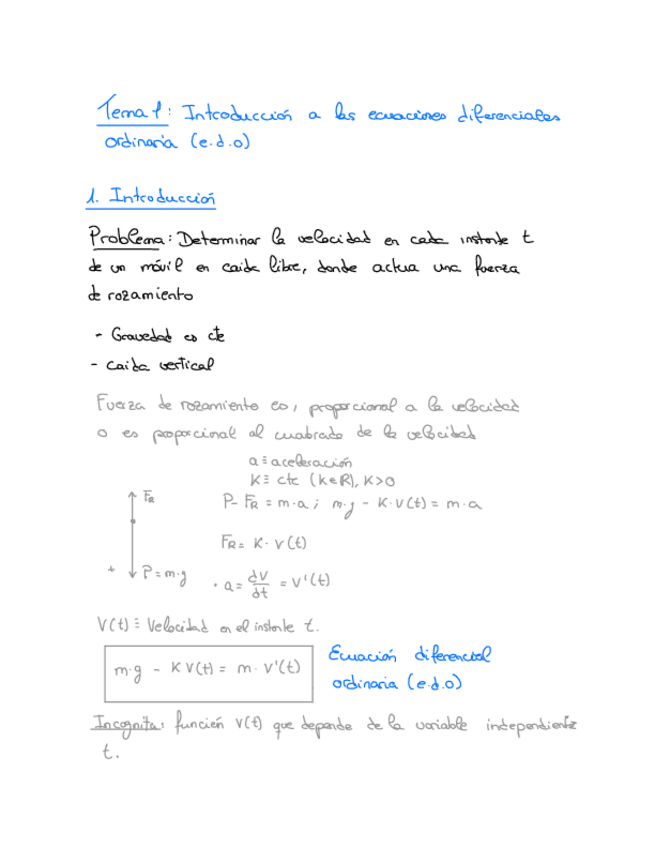 Tema 1: Introducción a las ecuaciones diferenciales
ordinaria (e.d.o)
1. Introducción
Problema: Determinar la velocidad en cada instante t
de un móvil en caida libre, donde actua una fuerza
de rozamiento
- Gravedad es cte
- Caida vertical
Fuerza de rozamiento es, proporcional a la velocidad
o es proporcional al cuadrado de la velocidad
a ≡ aceleración
K ≡ cte (k∈R), K>0
FR
P - FR = m·a ; m·g - K·V(t) = m·a
FR = K·V(t)
+ P = m·g
· a = dV/dt = V'(t)
V(t) ≡ Velocidad en el instante t.
m·g - K V(t) = m· V'(t)
Ecuación diferencial
ordinaria (e.d.o)
Incognita: función V(t) que depende de la variable independiente
t.